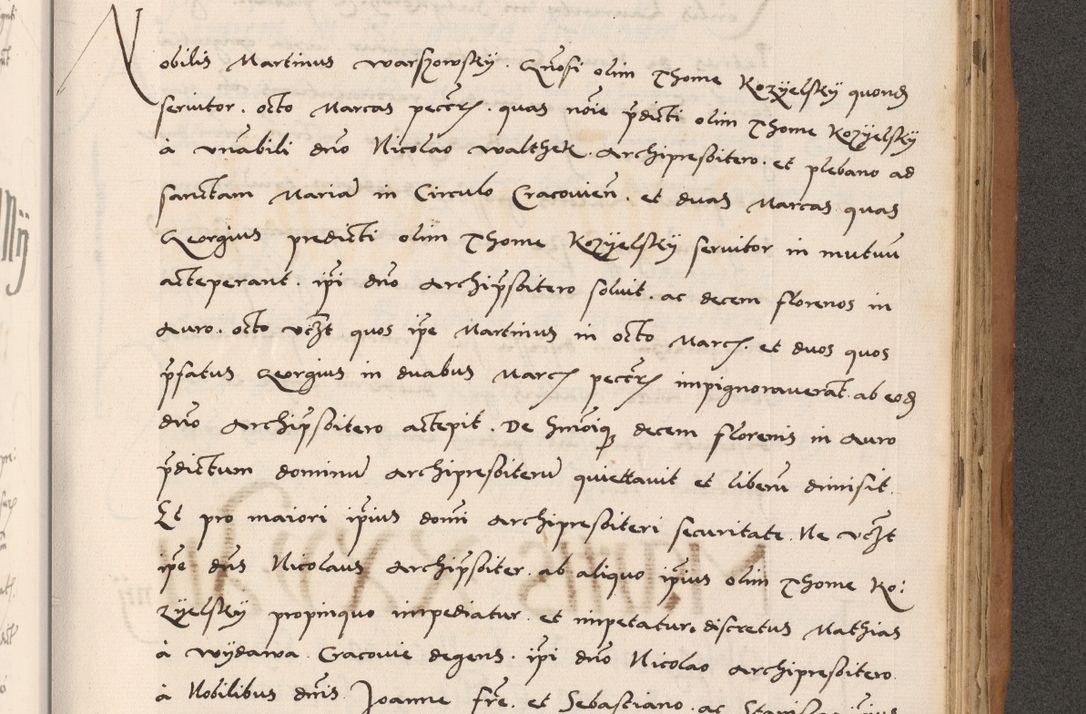 Nobilis Martinus Warszowsky. Gnosi olim Thome Kozyelsky quond
servitor. octo Marcas pecctr. quas noie pdicti olim Thome Kozyelsky
à vnabili dno Nicolao Walthek. Archipresbitero. et plebano ad
sanctam Maria in Circulo Cracovien. et duas Marcas quas
Georgius predicti olim Thome Kozyelsky servitor in mutuu
acceperant. ipi dno Archipsbitero solvit. ac decem florenos in
Auro. octo vczt quos ipe Martinus in octo Marc. et duos quos
pfatus Georgius in duabus Marc pecctr impignoraverat. ab eod
dno Archipsbitero accepit. De decem florenis in Auro
pdictum dominu Archipresbiteru quiettavit et liberu dimisit.
Et pro maiori ipius domi Archipresbiteri securitate. Ne vczt
ipe dns Nicolaus Archipsbiter. ab aliquo ipius olim Thome Ko:
zyelsky propinquo impediatur. et impetatur. discretus Mathias
à Wydawa. Cracovie degens. ipi dno Nicolao Archipresbitero.
à Nobilibus dnis Joanne fre. et Sebastiano. ac